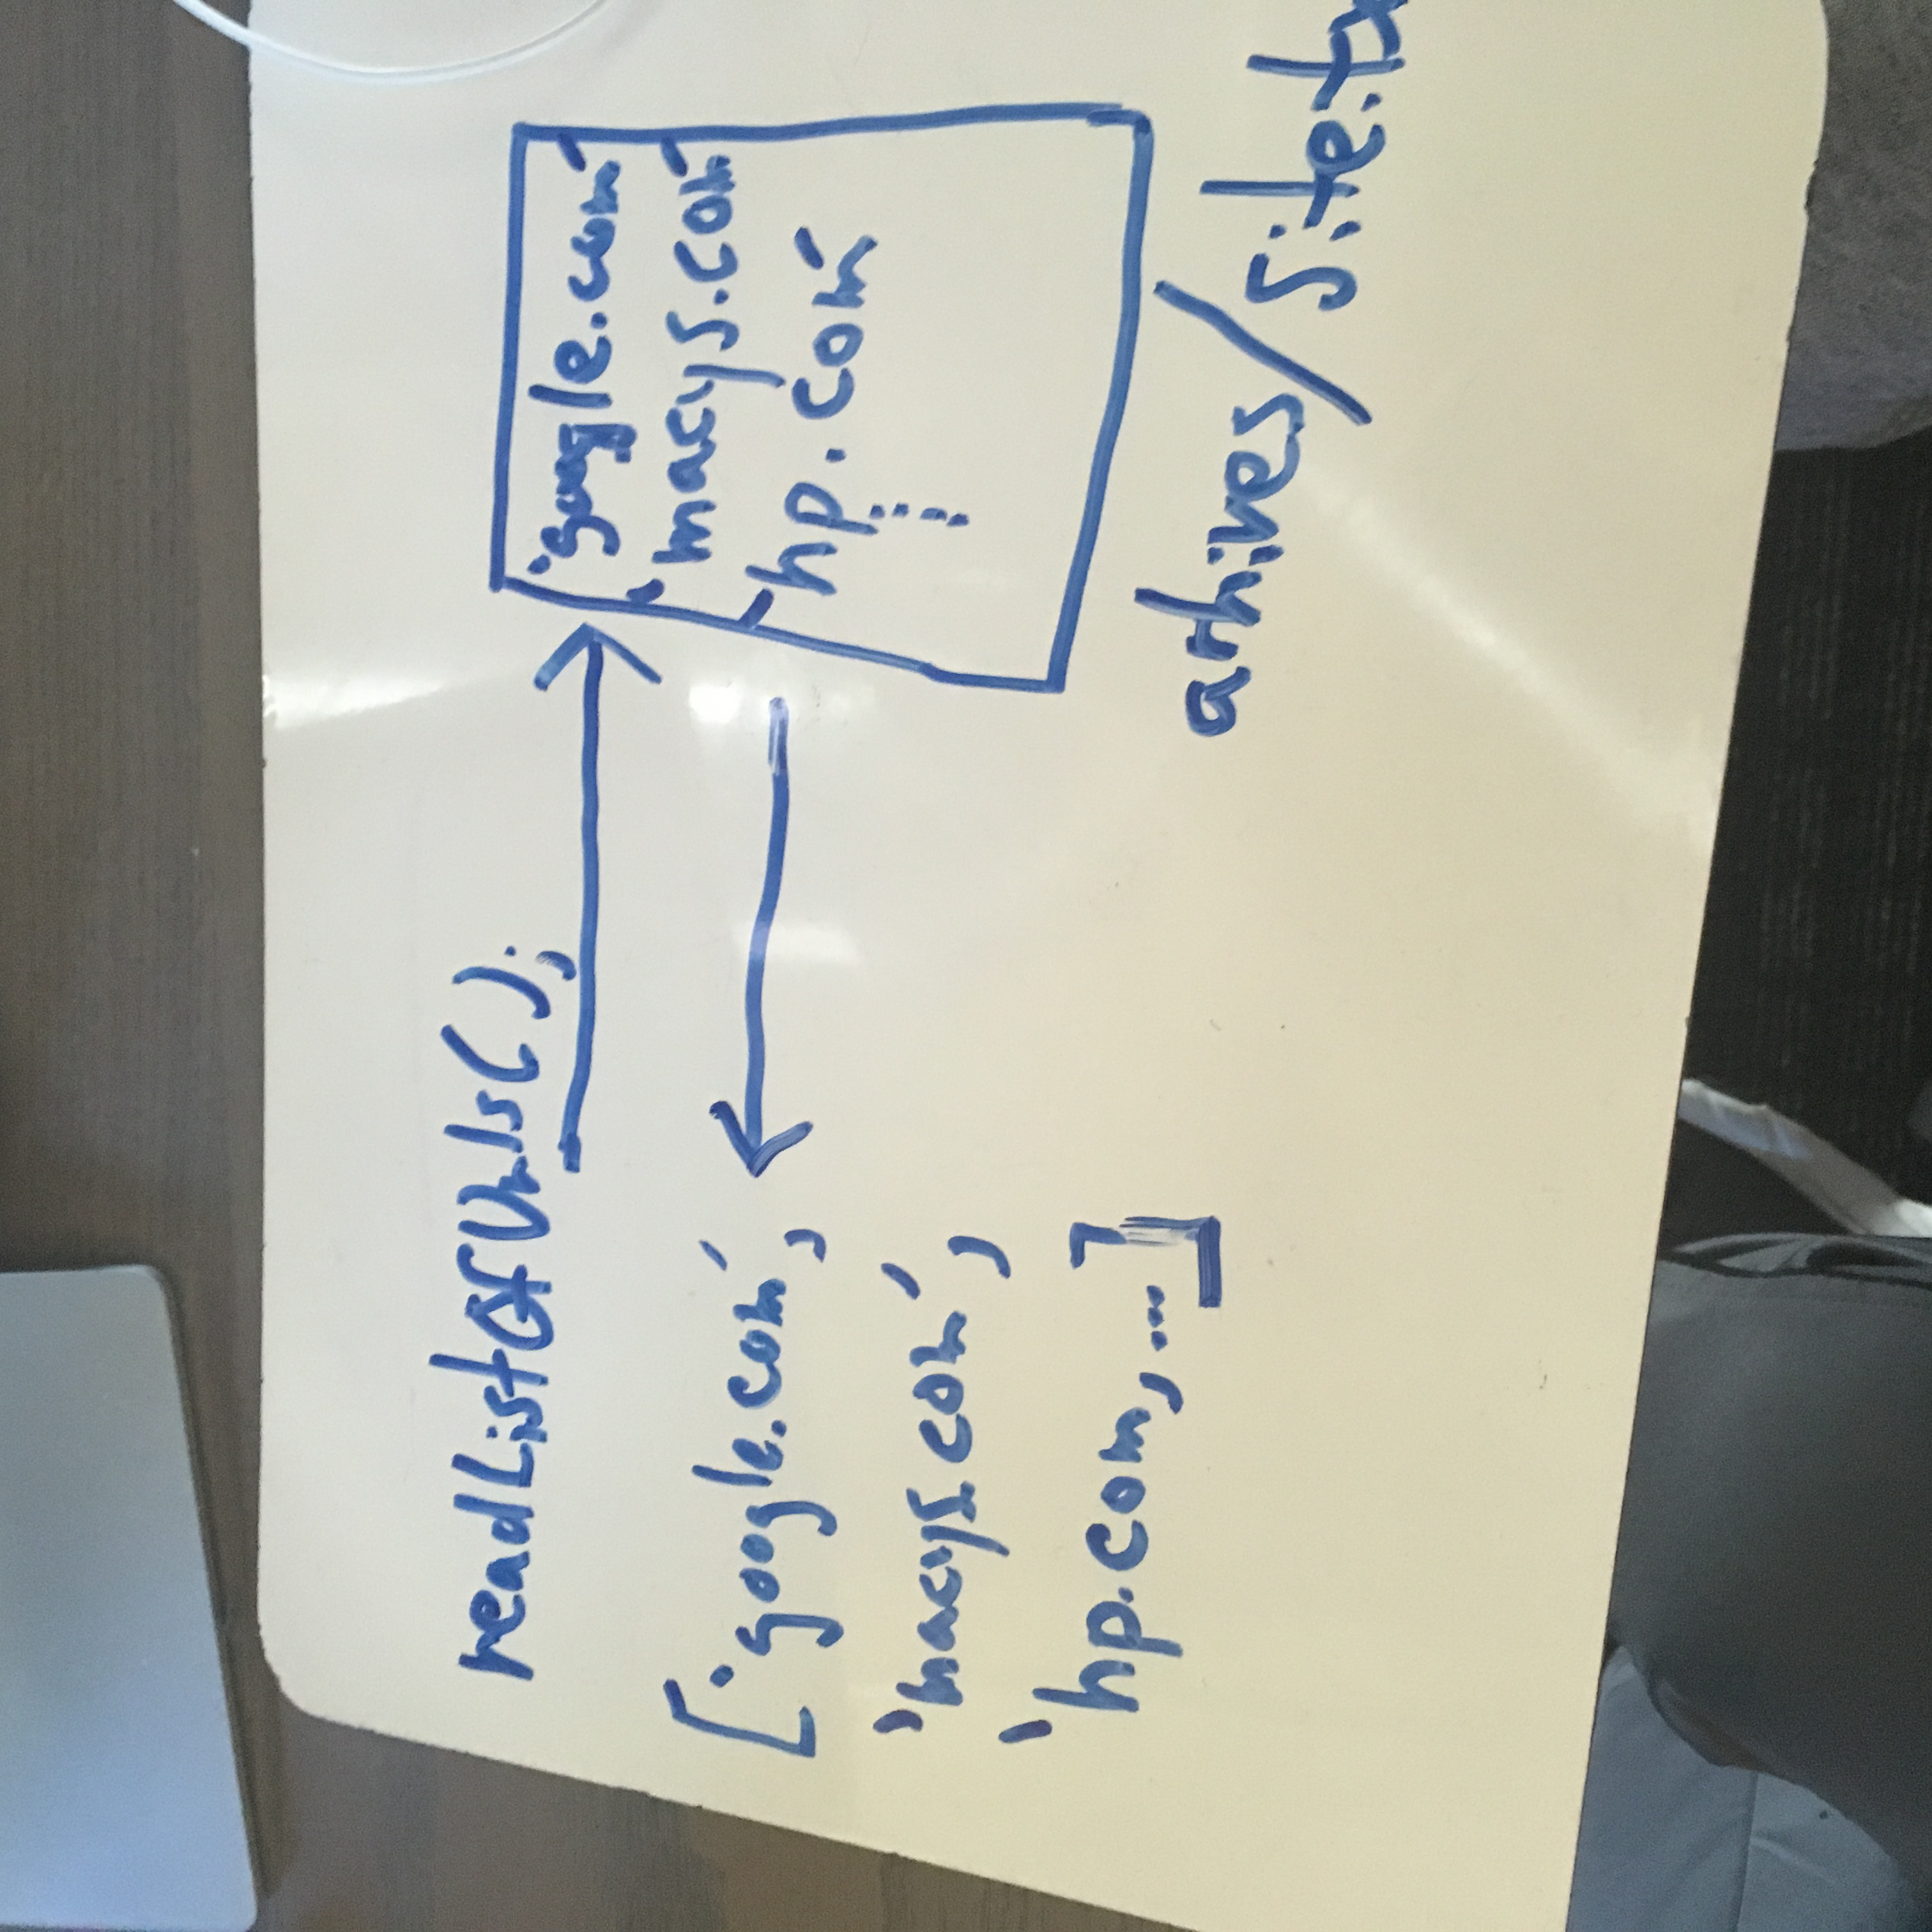 readListOfUrls();
['google.com',
'macys.com',
'hp.com,...]
'google.com'
'macys.com'
'hp.com'
arhives/site.tx